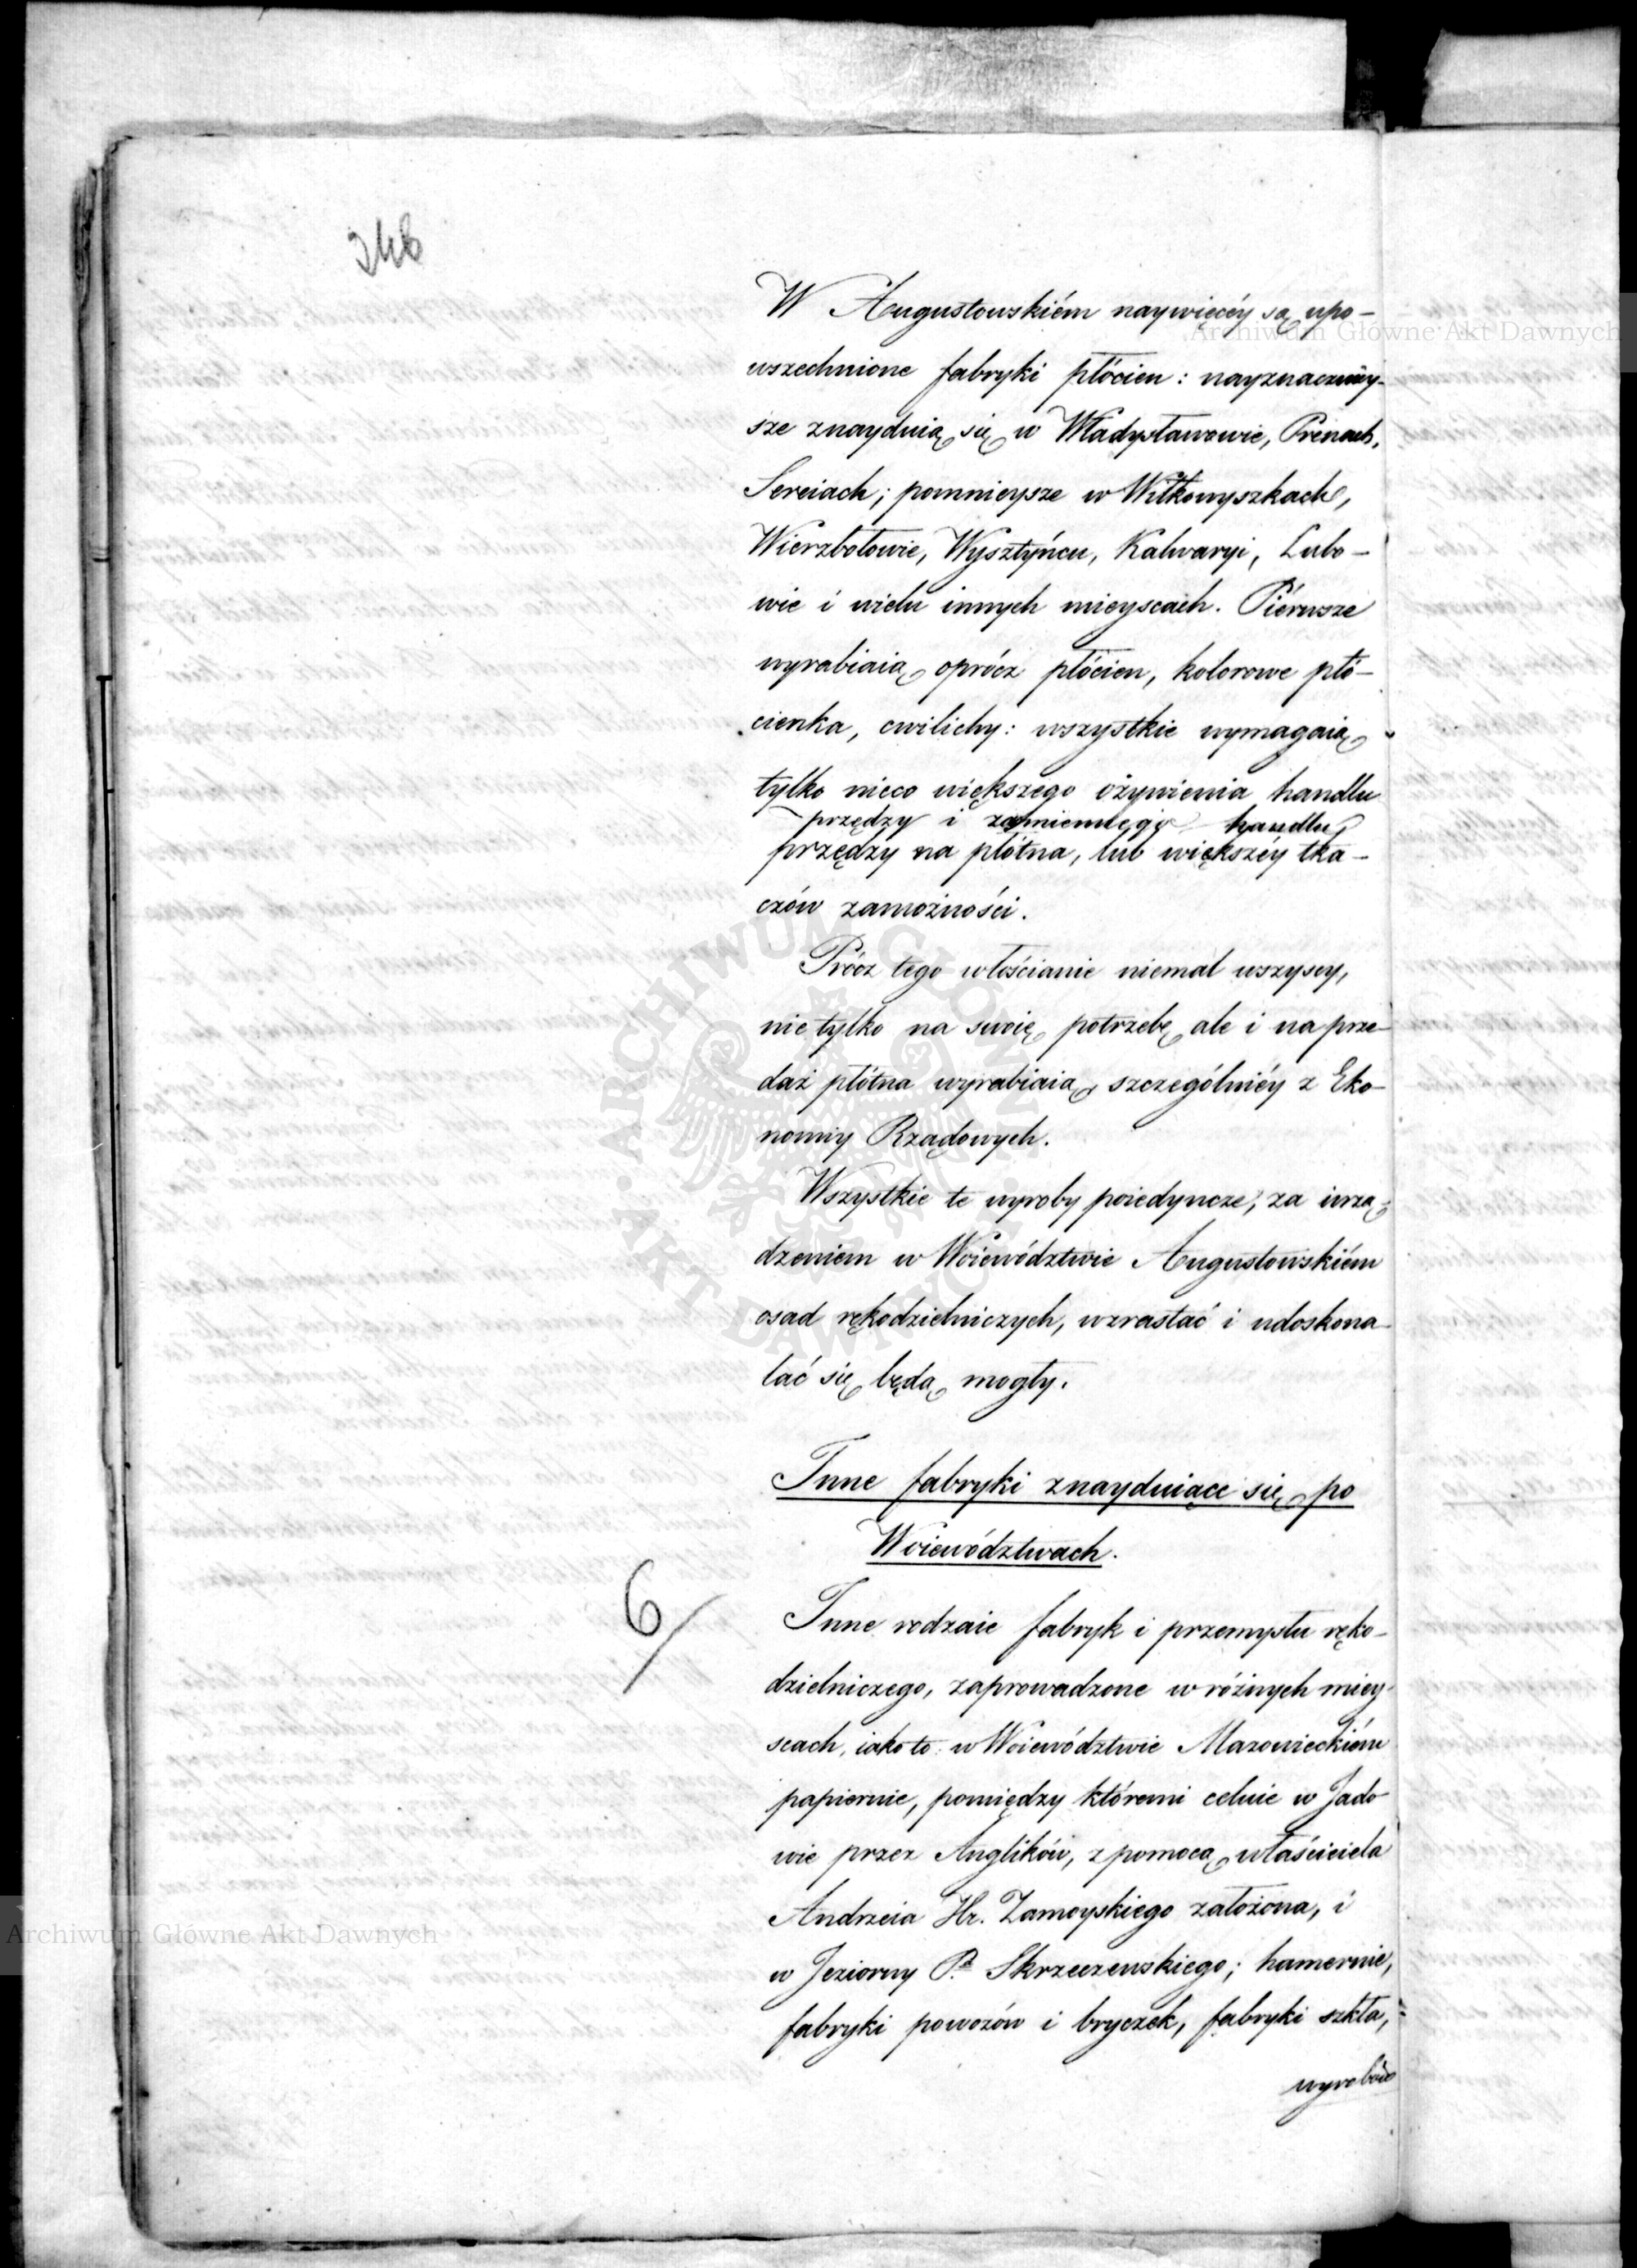 346
W Augustowskiém naywięcéy są upo-
wszechnione fabryki płócien: nayznacznéy-
sze znayduią się w Władysławowie, Prenach,
Sereiach; pomnieysze w Wiłkowyszkach,
Wierzbołowie, Wysztyńcu, Kalwaryi, Lubo-
wie i wielu innych mieyscach. Piérwsze
wyrabiaią oprócz płócien, kolorowe płó-
cienka, cwilichy: wszystkie wymagaią
tylko nieco większego ożywienia handlu
przędzy i zamiennego handlu
przędzy na płótna, lub większéy tka-
czów zamożności.
Prócz tego włościanie niemal wszyscy,
nie tylko na swoię potrzebę ale i na prze-
daż płótna wyrabiaią, szczególniéy z Eko-
nomiy Rządowych.
Wszystkie te wyroby poiedyncze, za urzą-
dzeniem w Woiewództwie Augustowskiém
osad rękodzielniczych, wzrastać i udoskona-
lać się będą mogły.
Inne fabryki znayduiące się po
Woiewództwach.
6/
Inne rodzaie fabryk i przemysłu ręko-
dzielniczego, zaprowadzone w różnych miey-
scach, iako to: w Woiewództwie Mazowieckiém
papiernie, pomiędzy któremi celuie w Jado-
wie przez Anglików, z pomocą właściciela
Andrzeia Hr. Zamoyskiego założona, i
w Jeziorny Pa Skrzeczewskiego; hamernie,
fabryki powozów i bryczek, fabryki szkła,
wyrobów
Archiwum Główne Akt Dawnych
Archiwum Główne Akt Dawnych
ARCHIWUM GŁÓWNE AKT DAWNYCH